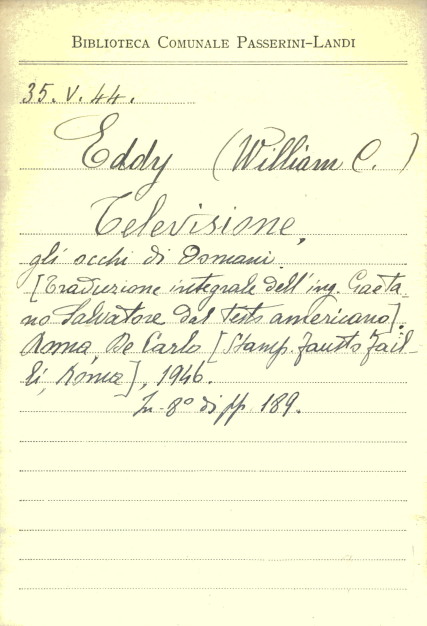 BIBLIOTECA COMUNALE PASSERINI-LANDI
35. V. 44.
Eddy (William C.)
Televisione,
gli occhi di Domani.
[Traduzione integrale dell'ing. Gaeta-
no Salvatore dal testo americano].
Roma, De Carlo [Stamp. Fausto Fail-
li, Roma], 1946.
In-8° di pp. 189.